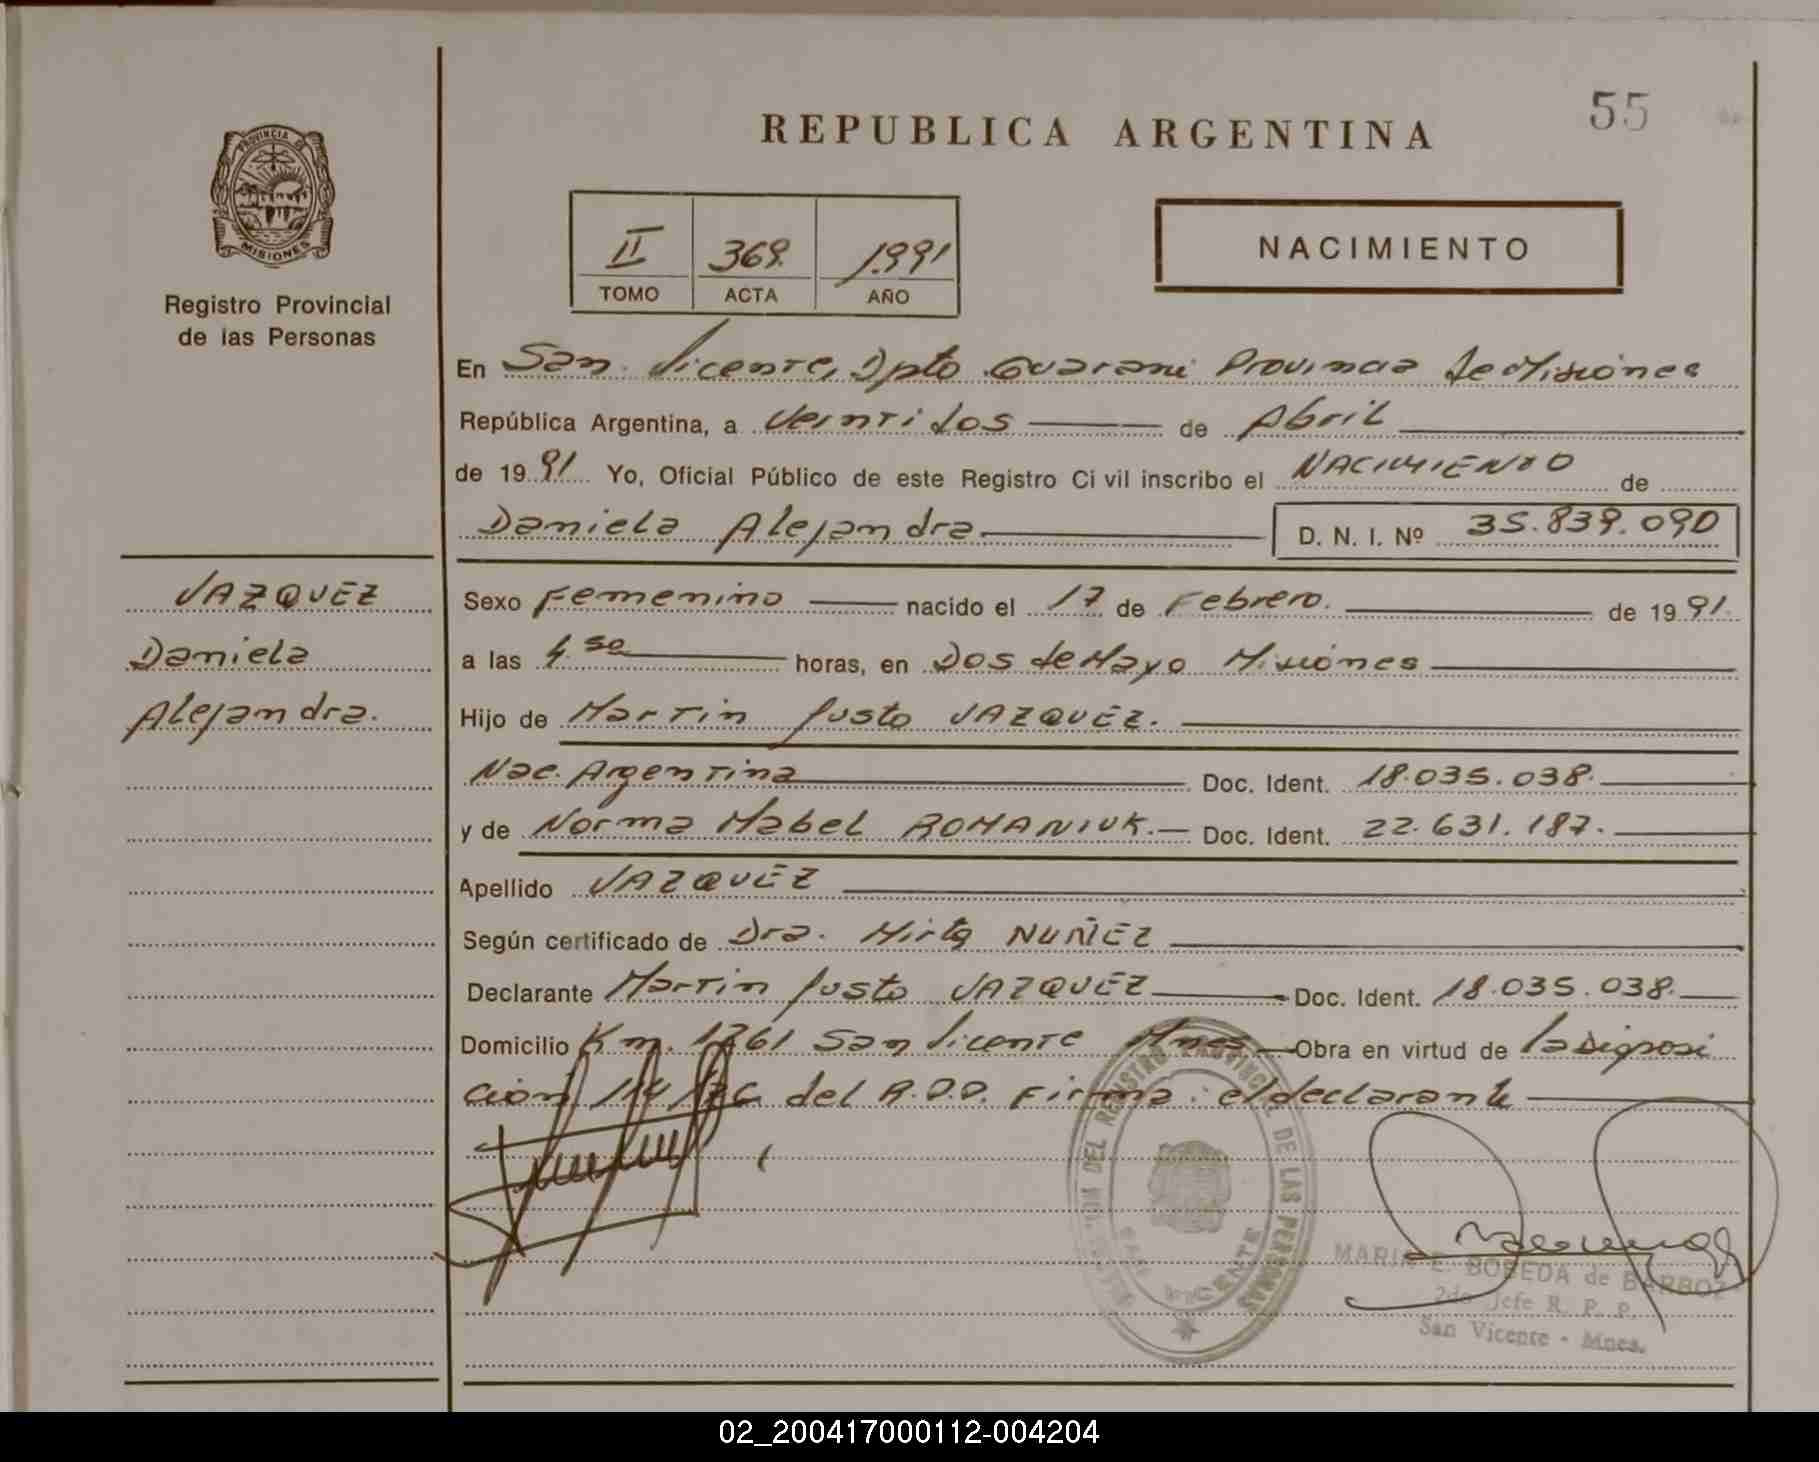 55
REPUBLICA ARGENTINA
PROVINCIA DE
MISIONES
Registro Provincial
de las Personas
II 369. 1.991
TOMO ACTA AÑO
NACIMIENTO
En San Vicente, Dpto Guarani Provincia de Misiones
República Argentina, a Veintidos de Abril
de 1991 Yo, Oficial Público de este Registro Civil inscribo el NACIMIENTO de
Daniela Alejandra D. N. I. Nº 35.839.090
VAZQUEZ
Daniela
Alejandra.
Sexo Femenino nacido el 17 de Febrero. de 1991.
a las 4,30 horas, en Dos de Mayo Misiones
Hijo de Martin Justo VAZQUEZ.
Nac. Argentina Doc. Ident. 18.035.038.
y de Norma Mabel ROMANIUK.- Doc. Ident. 22.631.187.
Apellido VAZQUEZ
Según certificado de Dra. Mirta NUÑEZ
Declarante Martin Justo VAZQUEZ Doc. Ident. 18.035.038.
Domicilio Km. 1261 San Vicente Mnes Obra en virtud de la disposi
cion 114/76 del R.P.P. Firma: el declarante
DEL REGISTRO PROVINCIAL DE LAS PERSONAS
SAN VICENTE
MARIA E. BOBEDA de BARBOZ
2do Jefe R. P. P.
San Vicente - Mnes.
02_200417000112-004204